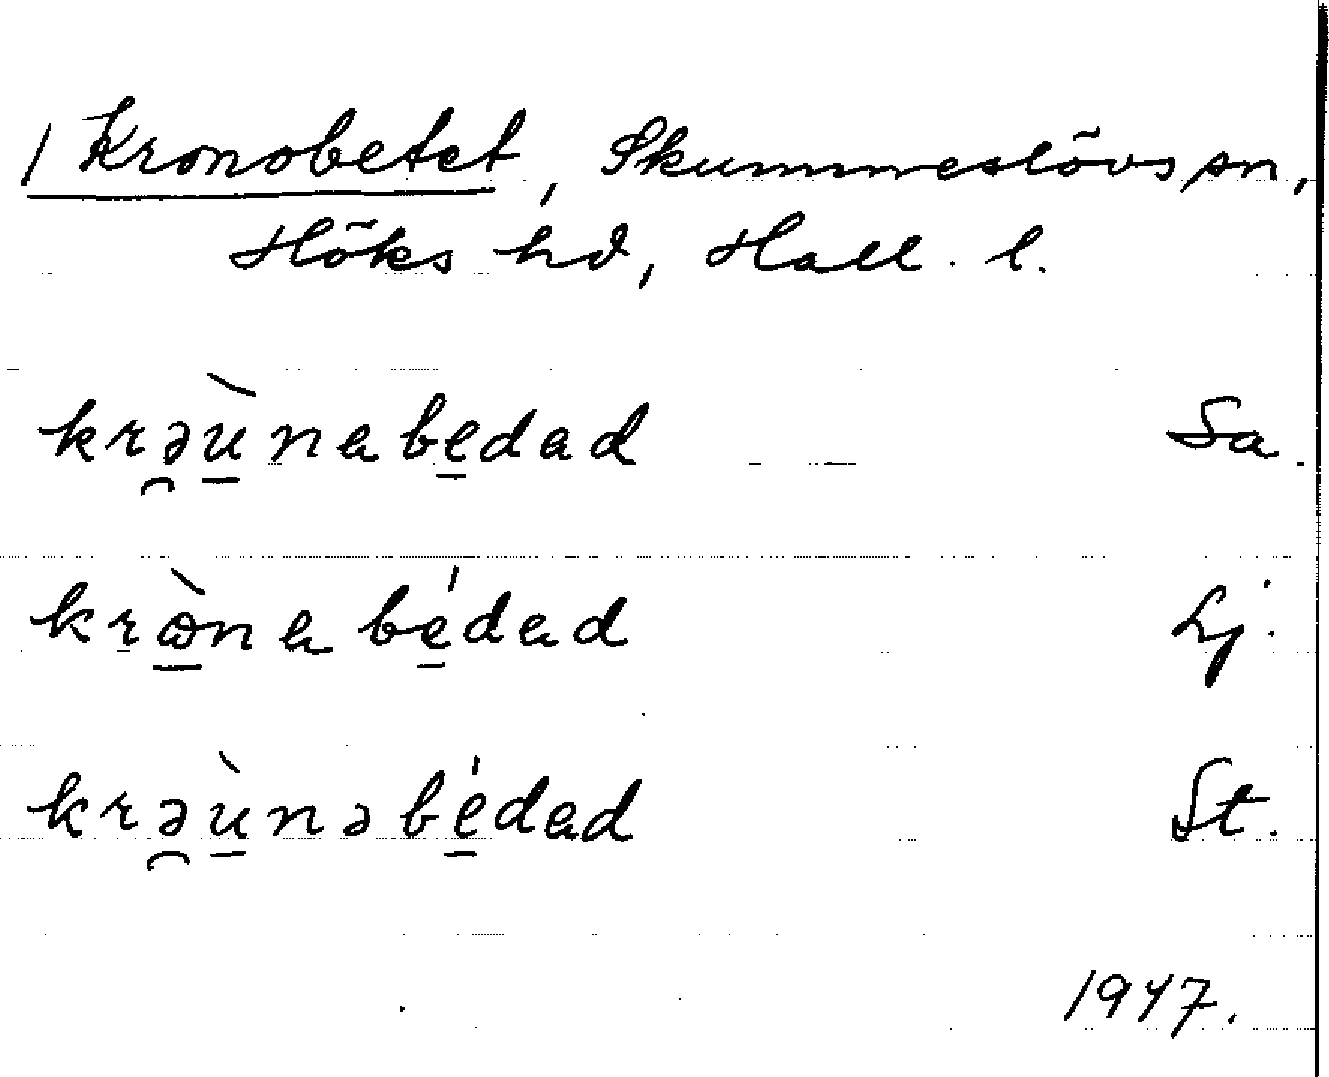 / Kronobetet, Skummeslövs sn,
Höks hd, Hall. l.
krə̯ù̱nabe̱dad Sa.
krὼ̱nabé̱dad Lj.
krə̯ù̱nəbé̱dad St.
1947.